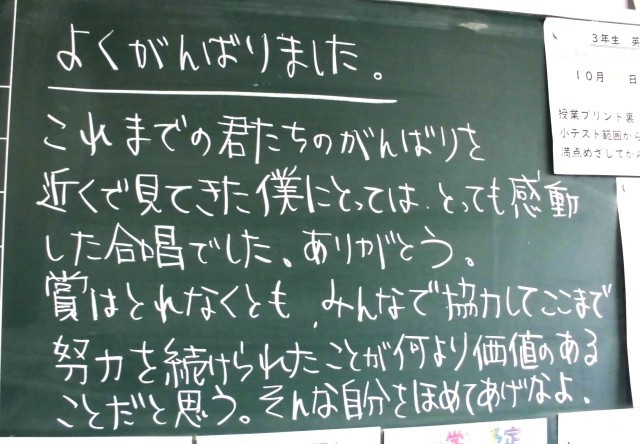 よくがんばりました。
これまでの君たちのがんばりを
近くで見てきた僕にとっては、とっても感動
した合唱でした。ありがとう。
賞はとれなくとも、みんなで協力してここまで
努力を続けられたことが何より価値のある
ことだと思う。そんな自分をほめてあげなよ。
3年生 英
10月 日
授業プリント裏
小テスト範囲から
満点めざしてから